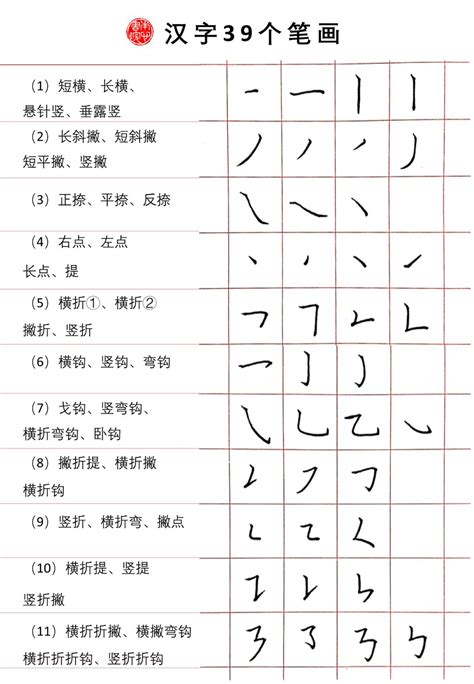 汉字39个笔画
（1）短横、长横、
悬针竖、垂露竖
（2）长斜撇、短斜撇
短平撇、竖撇
（3）正捺、平捺、反捺
（4）右点、左点
长点、提
（5）横折①、横折②
撇折、竖折
（6）横钩、竖钩、弯钩
（7）戈钩、竖弯钩、
横折弯钩、卧钩
（8）撇折提、横折撇
横折钩
（9）竖折、横折弯、撇点
（10）横折提、竖提
竖折撇
（11）横折折撇、横撇弯钩
横折折折钩、竖折折钩